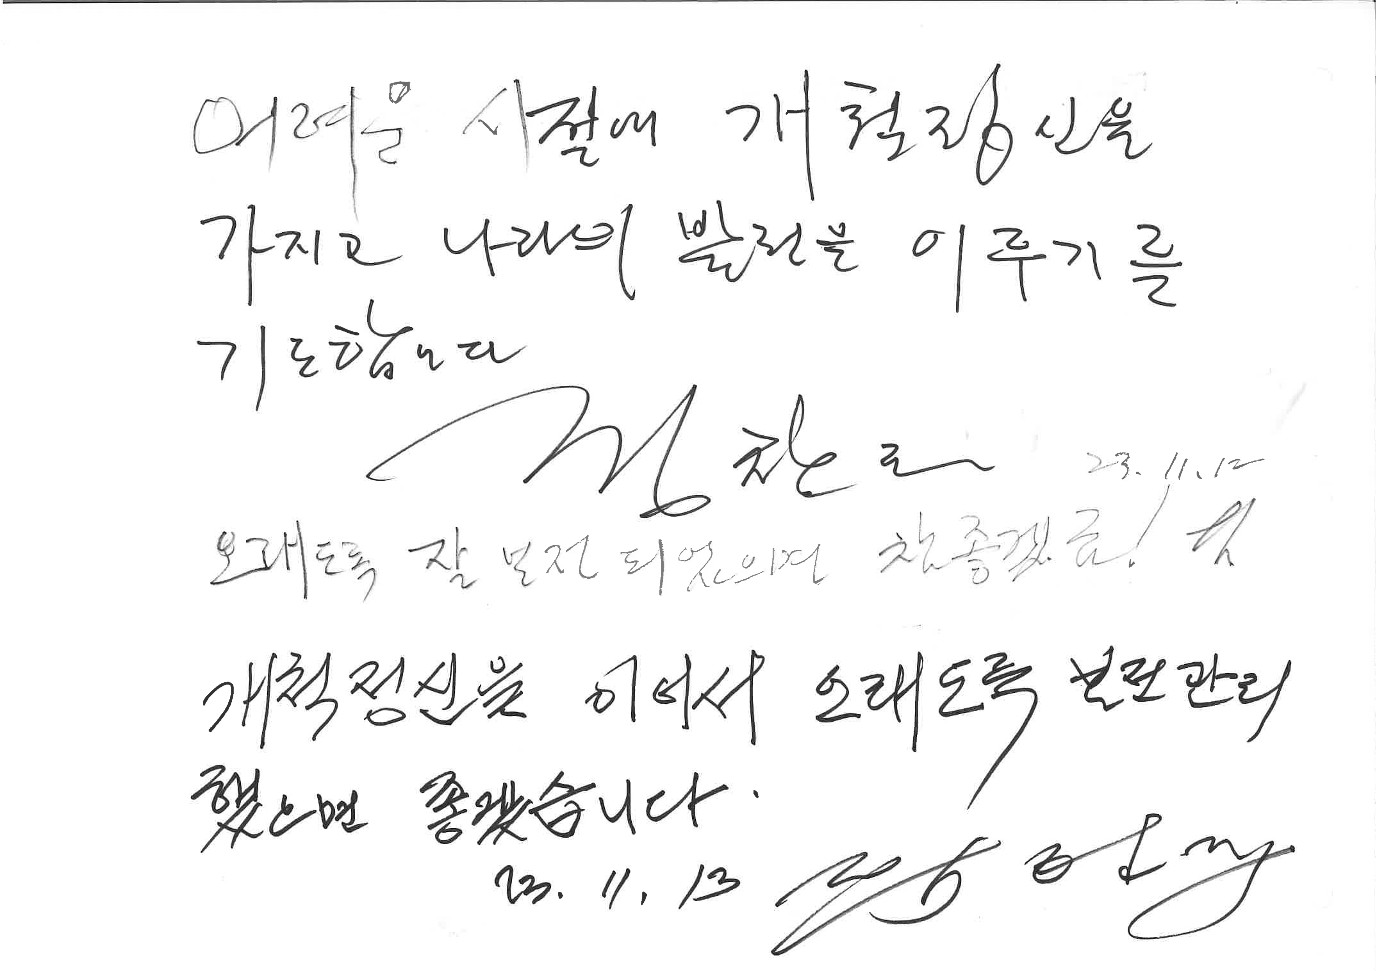 어려운 시절에 개척정신을
가지고 나라의 발전을 이루기를
기도합니다
찬
23.11.12
오래도록 잘 보전 되었으면 참좋겠음!
개척정신을 이어서 오래도록 보전관리
했으면 좋겠습니다.
23.11.13